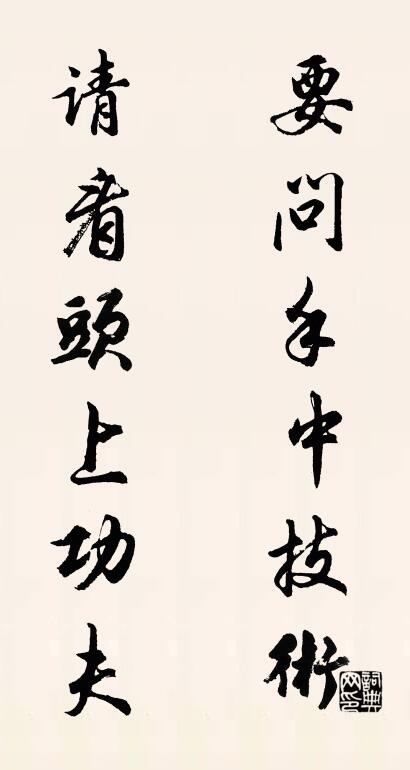 要问手中技術
请看頭上功夫
詞典网印